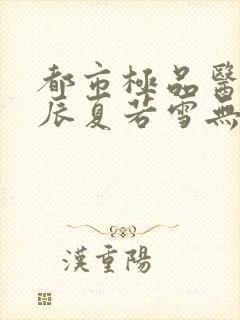 都市極品醫
辰夏若雪無
漢重陽